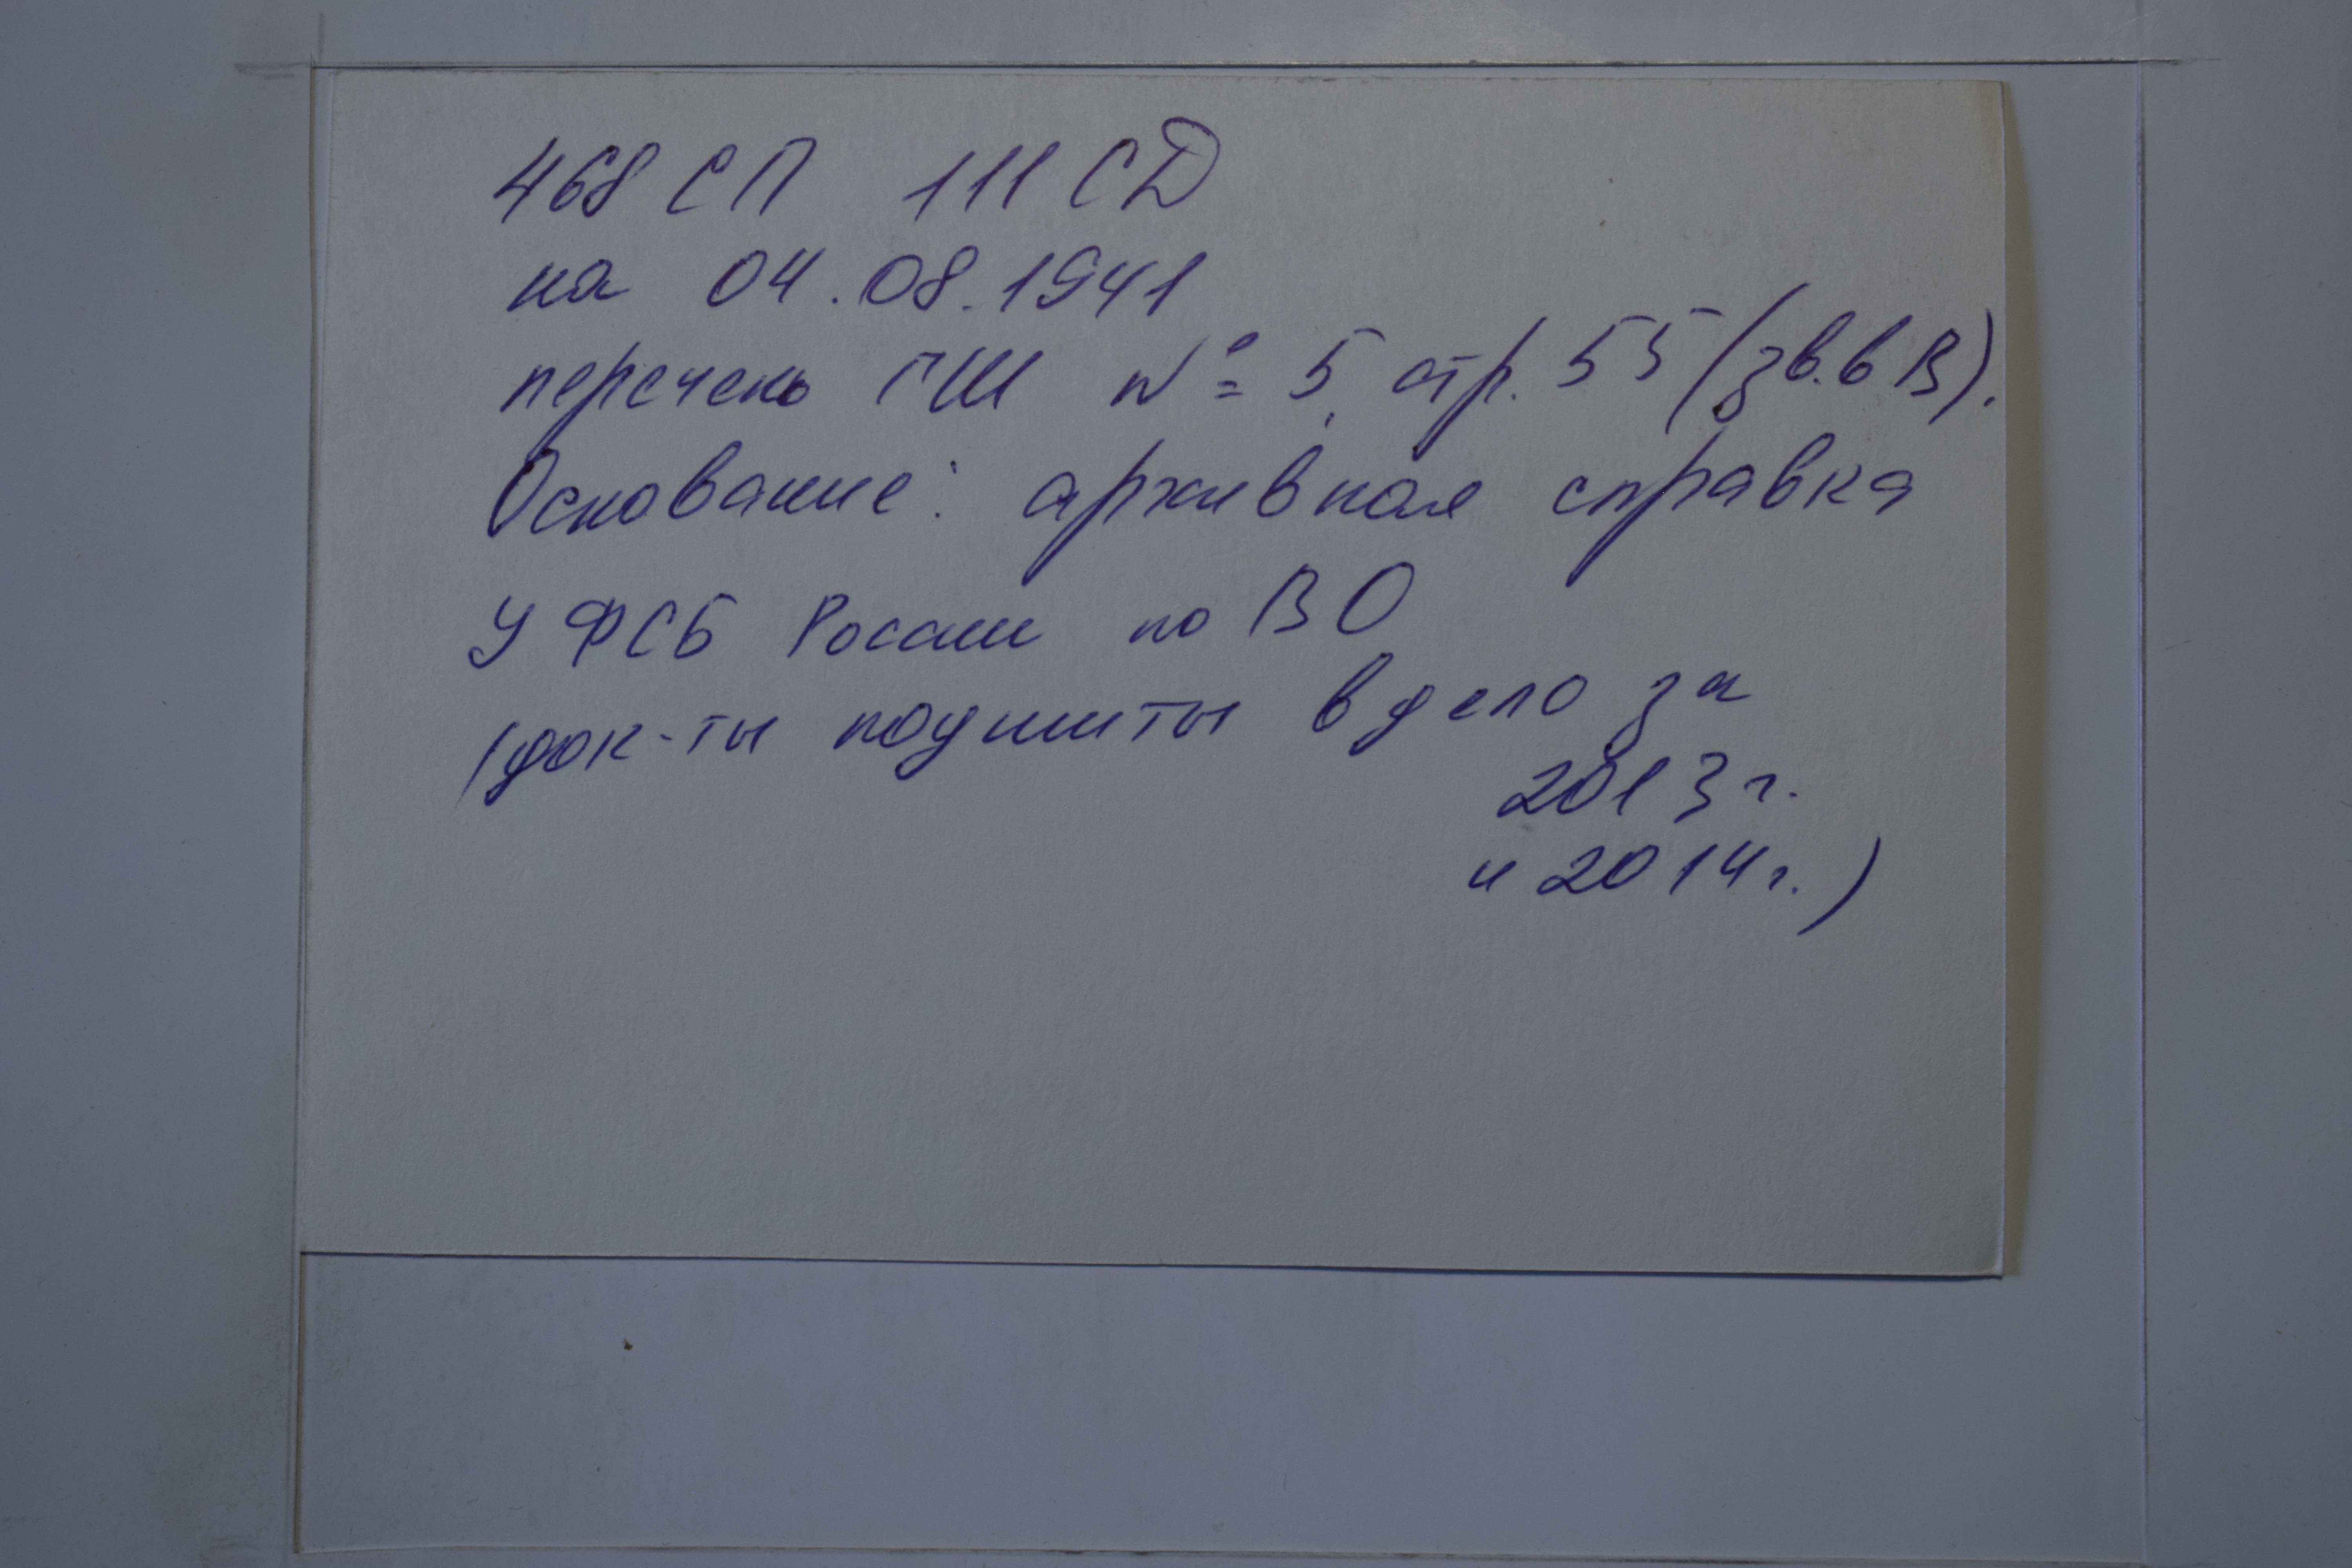 468 СП 111 СД
на 04.08.1941
перечень ГШ № 5, стр. 55 (зв. в В).
Основание: архивная справка
УФСБ России по ВО
(док-ты подшиты в дело за
2013 г.
и 2014 г.)